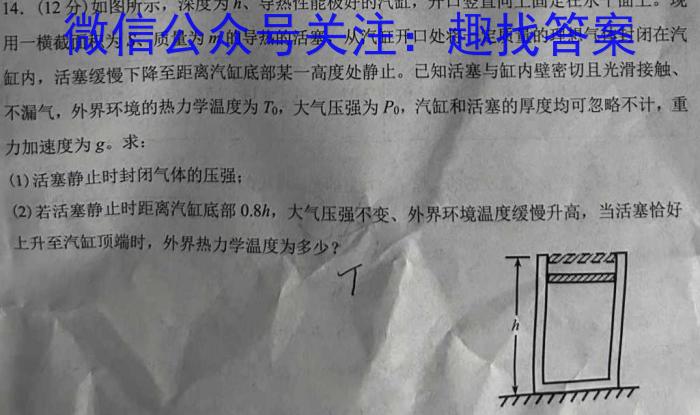 14．(12分)如图所示，深度为h、导热性能极好的汽缸，开口竖直向上固定在水平面上。现
用一横截面积为S、质量为m的导热的活塞，从汽缸开口处将一定质量的理想气体封闭在汽
微信公众号关注：趣找答案
缸内，活塞缓慢下降至距离汽缸底部某一高度处静止。已知活塞与缸内壁密切且光滑接触、
不漏气，外界环境的热力学温度为T₀，大气压强为P₀，汽缸和活塞的厚度均可忽略不计，重
力加速度为g。求：
(1)活塞静止时封闭气体的压强；
(2)若活塞静止时距离汽缸底部0.8h，大气压强不变、外界环境温度缓慢升高，当活塞恰好
上升至汽缸顶端时，外界热力学温度为多少？
T
h